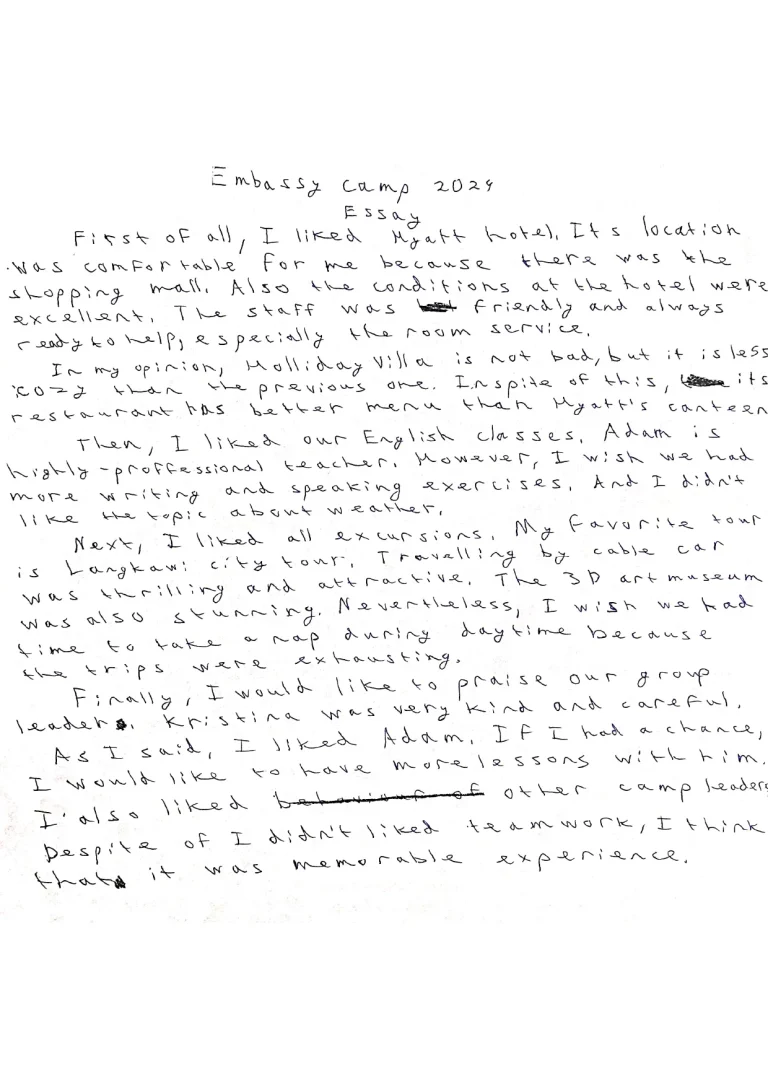 Embassy camp 2024
Essay
First of all, I liked Hyatt hotel. Its location
was comfortable for me because there was the
shopping mall. Also the conditions at the hotel were
excellent. The staff was friendly and always
ready to help, especially the room service.
In my opinion, Holliday Villa is not bad, but it is less
cozy than the previous one. Inspite of this, its
restaurant has better menu than Hyatt's canteen
Then, I liked our English classes. Adam is
highly-proffessional teacher. However, I wish we had
more writing and speaking exercises. And I didn't
like the topic about weather.
Next, I liked all excursions. My favorite tour
is Langkawi city tour. Travelling by cable car
was thrilling and attractive. The 3D art museum
was also stunning. Nevertheless, I wish we had
time to take a nap during daytime because
the trips were exhausting.
Finally, I would like to praise our group
leader. Kristina was very kind and careful.
As I said, I liked Adam. If I had a chance,
I would like to have more lessons with him.
I also liked behaviour of other camp leaders
Despite of I didn't liked teamwork, I think
that it was memorable experience.